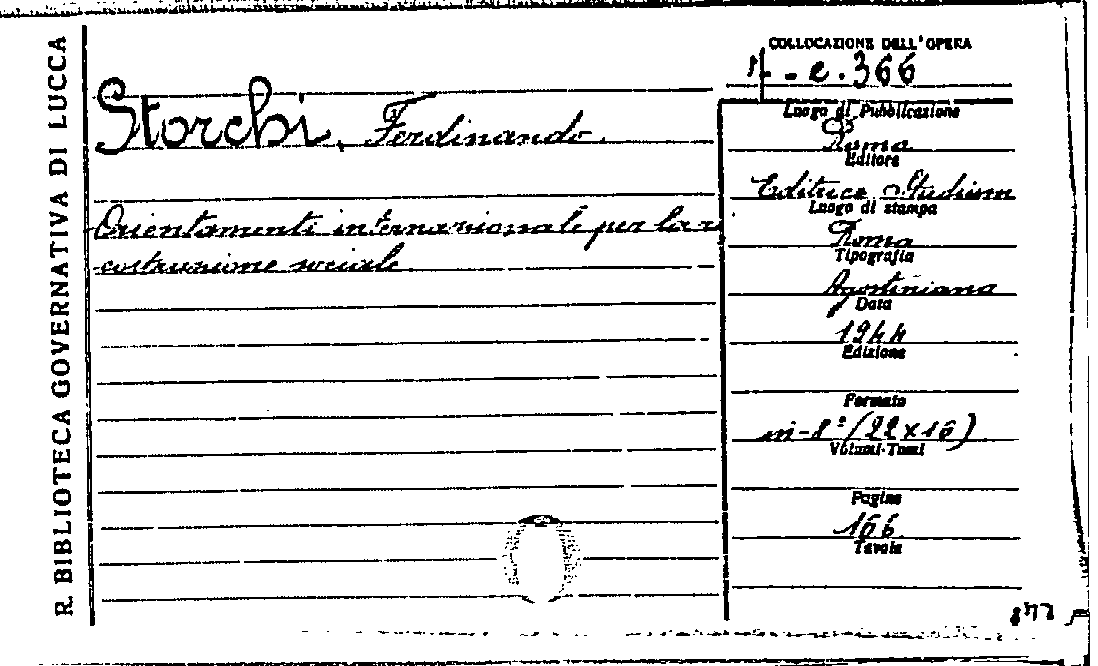 R. BIBLIOTECA GOVERNATIVA DI LUCCA
Storchi, Ferdinando.
Orientamenti internazionale per la ri
costruzione sociale
COLLOCAZIONE DELL'OPERA
e. 366
Luogo di Pubblicazione
Roma
Editore
Editrice Studium
Luogo di stampa
Roma
Tipografia
Agostiniana
Data
1944
Edizione
Formato
in-8° (22x16)
Volumi-Tomi
Pagine
166
Tavole